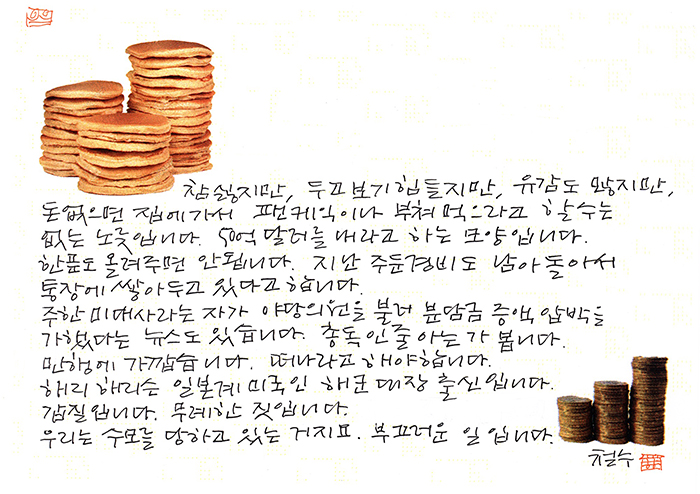 참 싫지만, 두고보기 힘들지만, 유감도 많지만,
돈없으면 집에가서 팬케익이나 부쳐먹으라고 할수는
없는 노릇입니다. 50억 달러를 내라고 하는 모양입니다.
한푼도 올려주면 안됩니다. 지난 주둔경비도 남아돌아서
통장에 쌓아두고 있다고 합니다.
주한 미대사라는 자가 야당의원을 불러 분담금 증액 압박을
가했다는 뉴스도 있습니다. 총독인줄 아는가 봅니다.
만행에 가깝습니다. 떠나라고 해야합니다.
해리 해리스는 일본계 미국인 해군 대장 출신입니다.
갑질입니다. 무례한 짓입니다.
우리는 수모를 당하고 있는 거지요. 부끄러운 일입니다.
철수